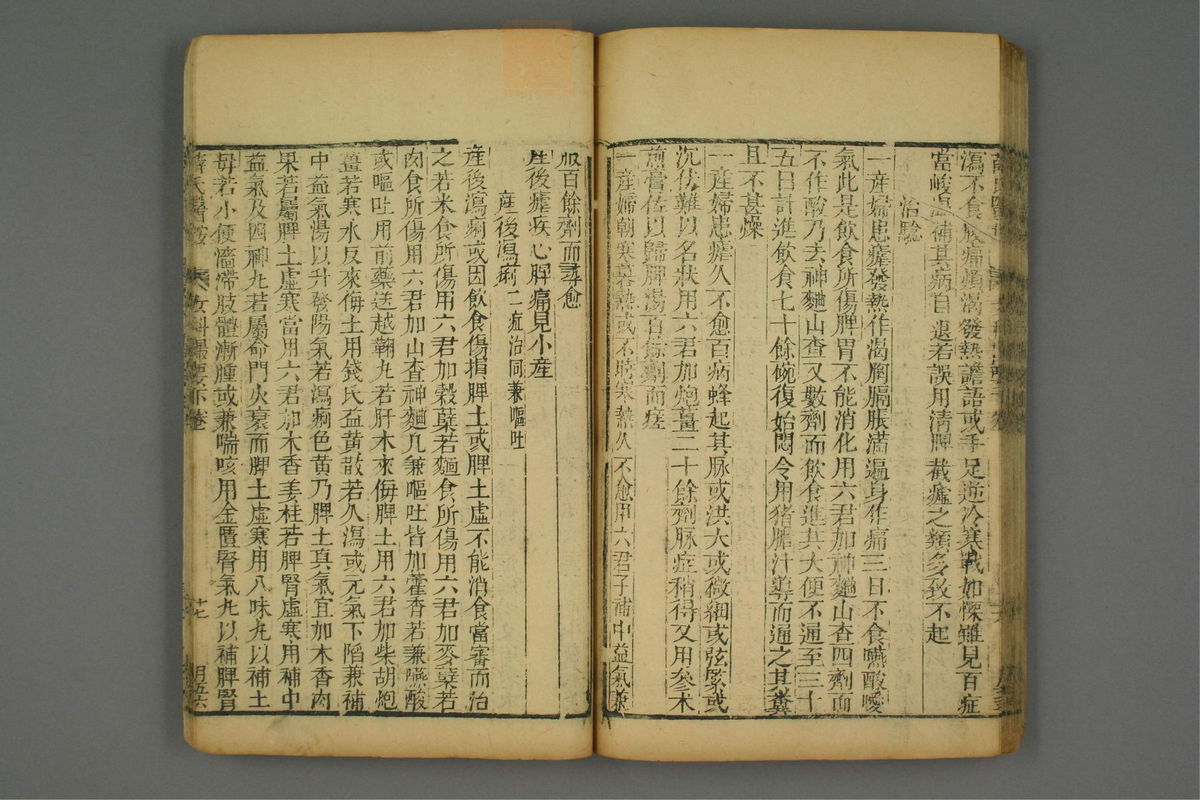 瀉不食腹痛煩渴發熱譫語或手足逆冷寒戰如慄雖見百症
當峻溫補其病自退若誤用清脾截瘧之類多致不起
治驗
一產婦患瘧發熱作渴胸膈脹滿遍身作痛三日不食嚥酸噯
氣此是飲食所傷脾胃不能消化用六君加神麯山查四劑而
不作酸乃去神麯山查又數劑而飲食進其大便不通至三十
五日計進飲食七十餘碗復始悶令用猪膽汁導而通之其糞
且不甚燥
一產婦患瘧久不愈百病蜂起其脉或洪大或微細或弦緊或
沉伏難以名狀用六君加炮薑二十餘劑脉症稍得又用參术
煎膏佐以歸脾湯百餘劑而痊
一產婦朝寒暮熱或不時寒熱久不愈用六君子補中益氣兼
服百餘劑而尋愈
產後瘧疾心脾痛見小產
產後瀉痢二症治同兼嘔吐
產後瀉痢或因飲食傷損脾土或脾土虛不能消食當審而治
之若米食所傷用六君加穀蘗若麵食所傷用六君加麥蘗若
肉食所傷用六君加山查神麯凡兼嘔吐皆加藿香若兼嚥酸
或嘔吐用前藥送越鞠丸若肝木來侮脾土用六君加柴胡炮
薑若寒水反來侮土用錢氏益黃散若久瀉或元氣下陷兼補
中益氣湯以升發陽氣若瀉痢色黃乃脾土真氣宜加木香肉
果若屬脾土虛寒當用六君加木香姜桂若脾腎虛寒用補中
益氣及四神丸若屬命門火衰而脾土虛寒用八味丸以補土
母若小便澁滯肢體漸腫或兼喘咳用金匱腎氣丸以補脾腎
薛氏醫案 女科撮要下卷 廿七